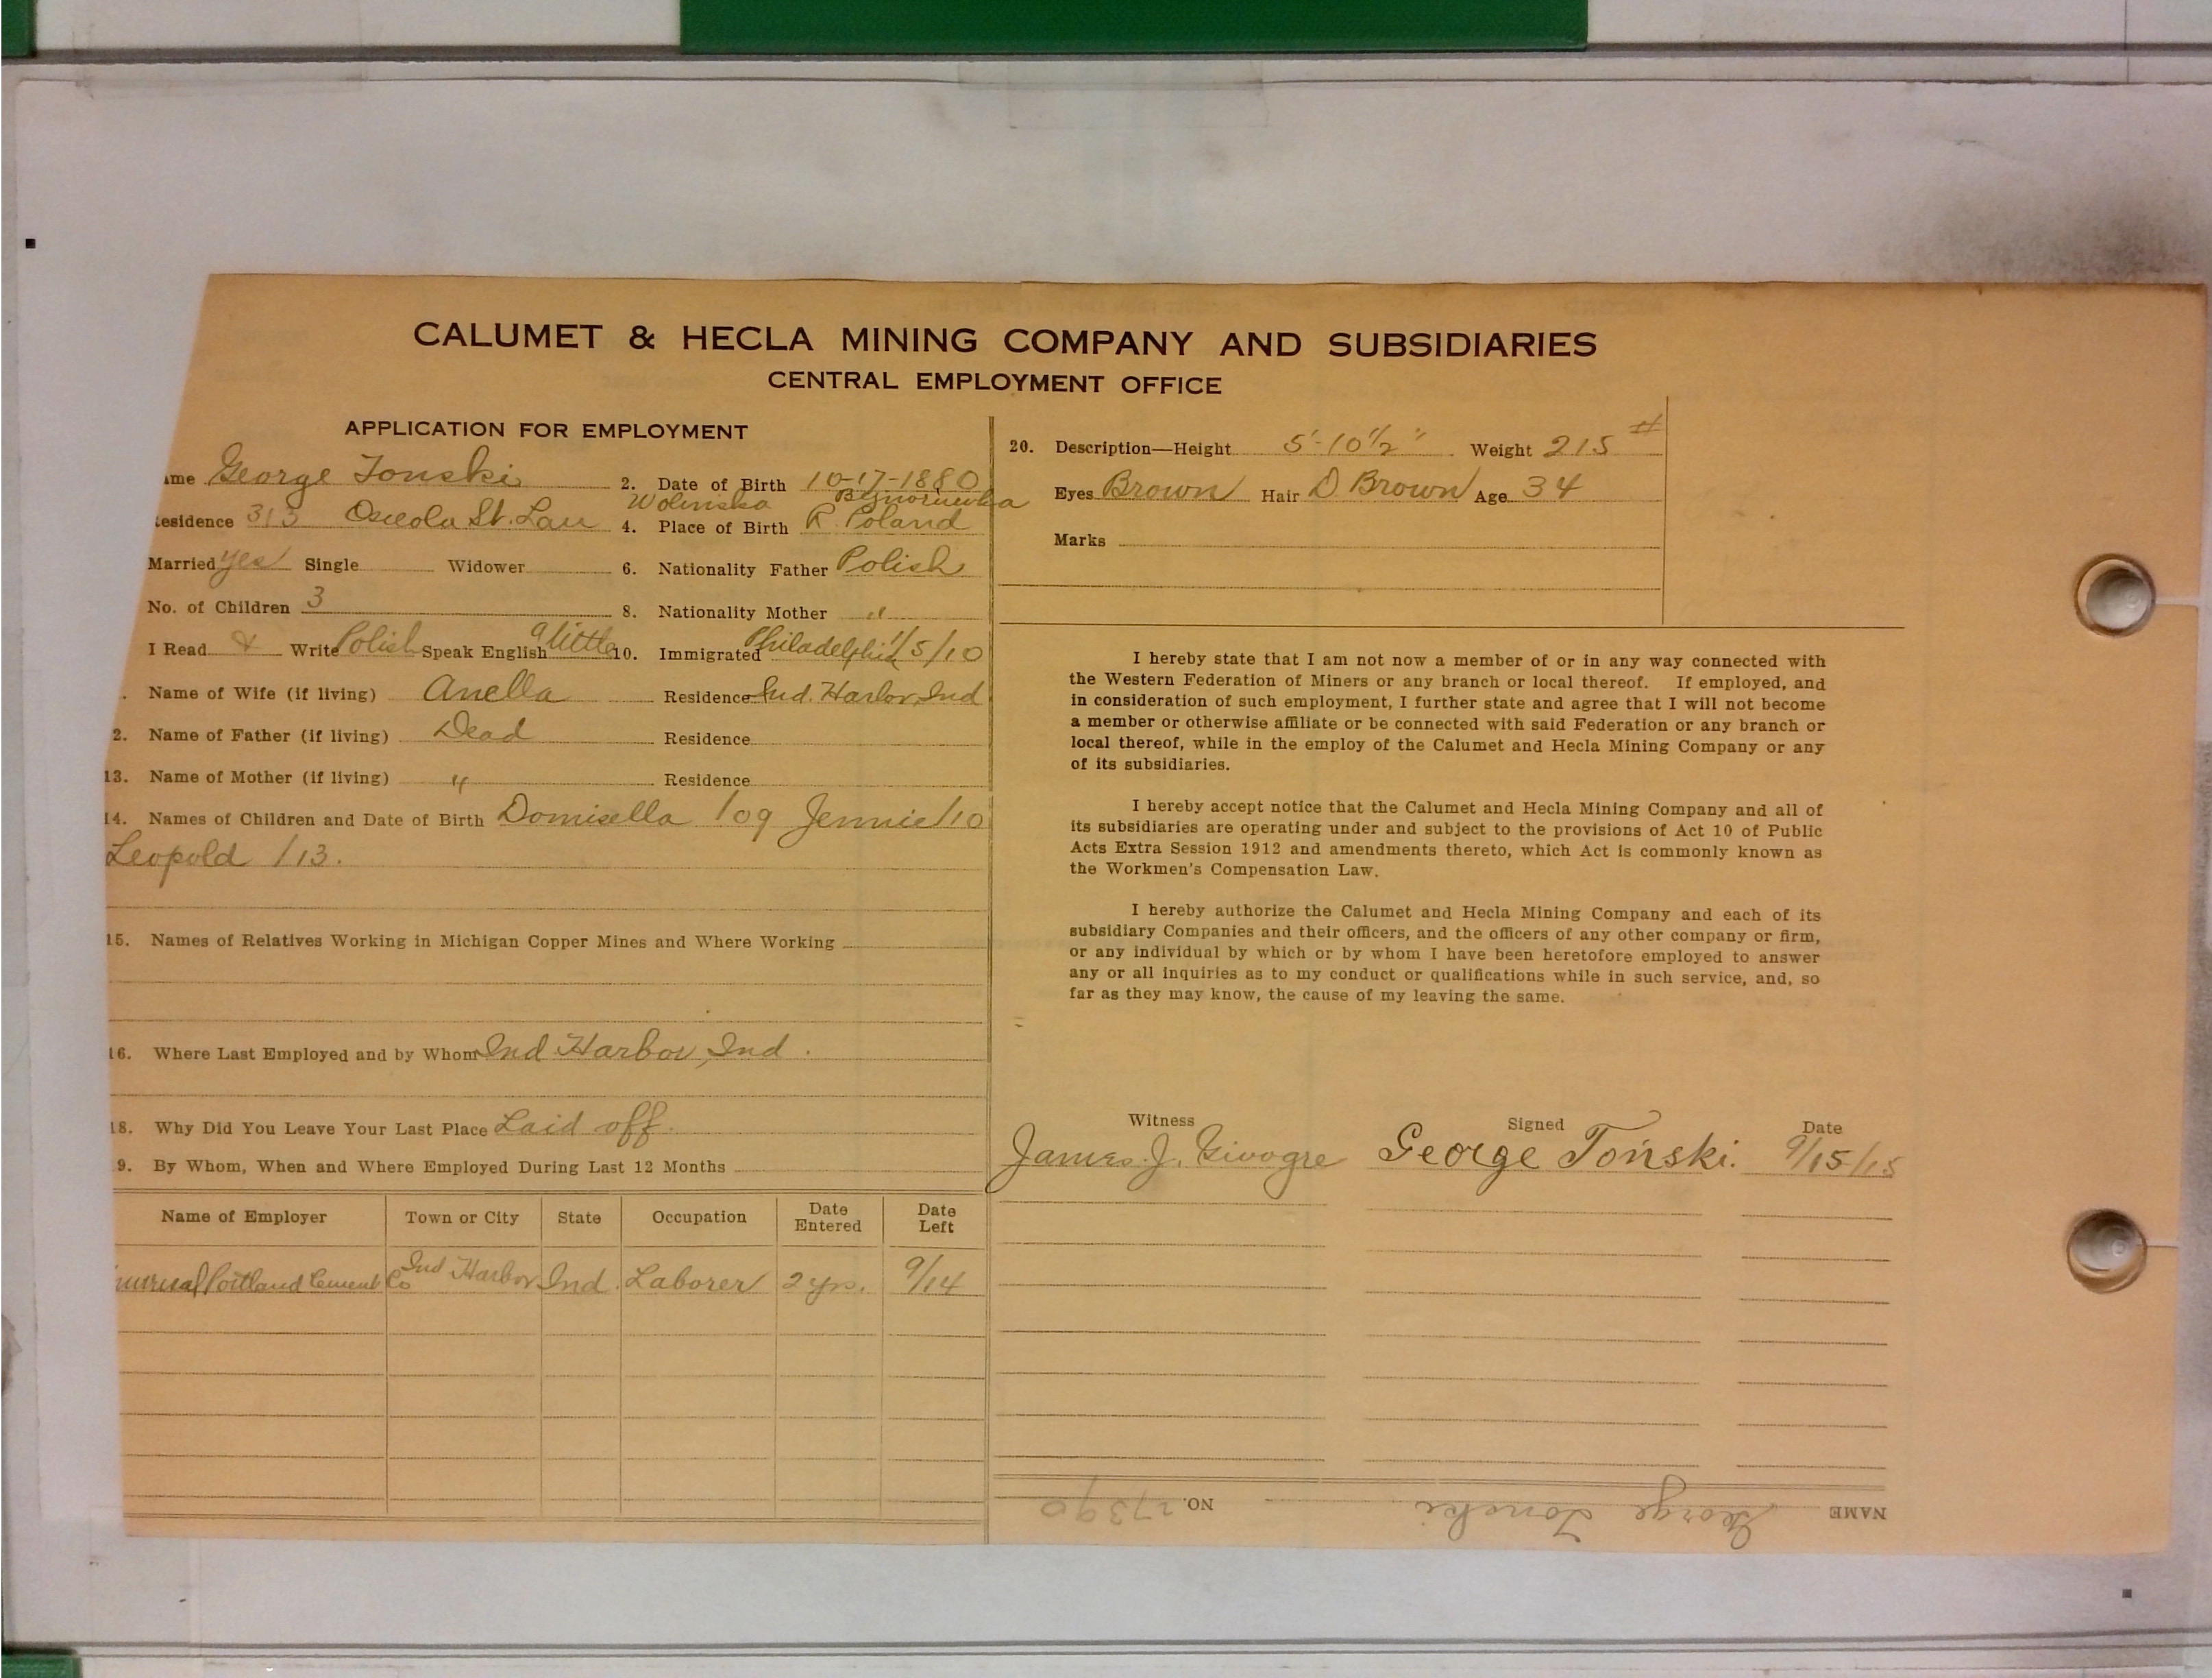 CALUMET & HECLA MINING COMPANY AND SUBSIDIARIES
CENTRAL EMPLOYMENT OFFICE
APPLICATION FOR EMPLOYMENT
ame George Tonski 2. Date of Birth 10-17-1880
Wolinska
esidence 313 Osceola St. Lau 4. Place of Birth R. Poland
Married yes Single Widower 6. Nationality Father Polish
No. of Children 3 8. Nationality Mother "
I Read & Write Polish Speak English a little 10. Immigrated Philadelphia 1/5/10
. Name of Wife (if living) Anella Residence Ind. Harbor, Ind
2. Name of Father (if living) Dead Residence
13. Name of Mother (if living) " Residence
14. Names of Children and Date of Birth Domisella /09 Jennie /10
Leopold /13.
15. Names of Relatives Working in Michigan Copper Mines and Where Working
16. Where Last Employed and by Whom Ind Harbor, Ind.
18. Why Did You Leave Your Last Place Laid off.
9. By Whom, When and Where Employed During Last 12 Months
Name of Employer Town or City State Occupation Date Entered Date Left
Universal Portland Cement Co Ind Harbor Ind. Laborer 2 yrs. 9/14
20. Description—Height 5'-10 1/2" Weight 215 #
Eyes Brown Hair D. Brown Age 34
Marks
I hereby state that I am not now a member of or in any way connected with
the Western Federation of Miners or any branch or local thereof. If employed, and
in consideration of such employment, I further state and agree that I will not become
a member or otherwise affiliate or be connected with said Federation or any branch or
local thereof, while in the employ of the Calumet and Hecla Mining Company or any
of its subsidiaries.
I hereby accept notice that the Calumet and Hecla Mining Company and all of
its subsidiaries are operating under and subject to the provisions of Act 10 of Public
Acts Extra Session 1912 and amendments thereto, which Act is commonly known as
the Workmen's Compensation Law.
I hereby authorize the Calumet and Hecla Mining Company and each of its
subsidiary Companies and their officers, and the officers of any other company or firm,
or any individual by which or by whom I have been heretofore employed to answer
any or all inquiries as to my conduct or qualifications while in such service, and, so
far as they may know, the cause of my leaving the same.
Witness Signed Date
James J. George Toński. 9/15/15
NAME George Tonski NO. 27390